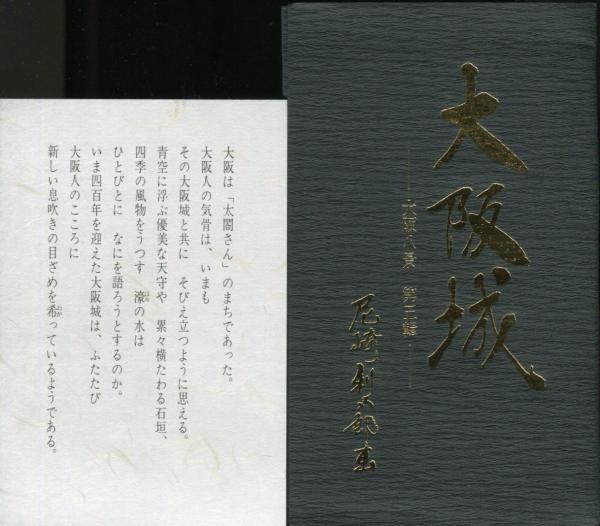 大阪城
大阪八景 第三輯
大阪は「太閤さん」のまちであった。
大阪人の気骨は、いまも
その大阪城と共に そびえ立つように思える。
青空に浮ぶ優美な天守や 累々横たわる石垣、
四季の風物をうつす 濠の水は
ひとびとに なにを語ろうとするのか。
いま四百年を迎えた大阪城は、ふたたび
大阪人のこころに
新しい息吹きの目ざめを希っているようである。